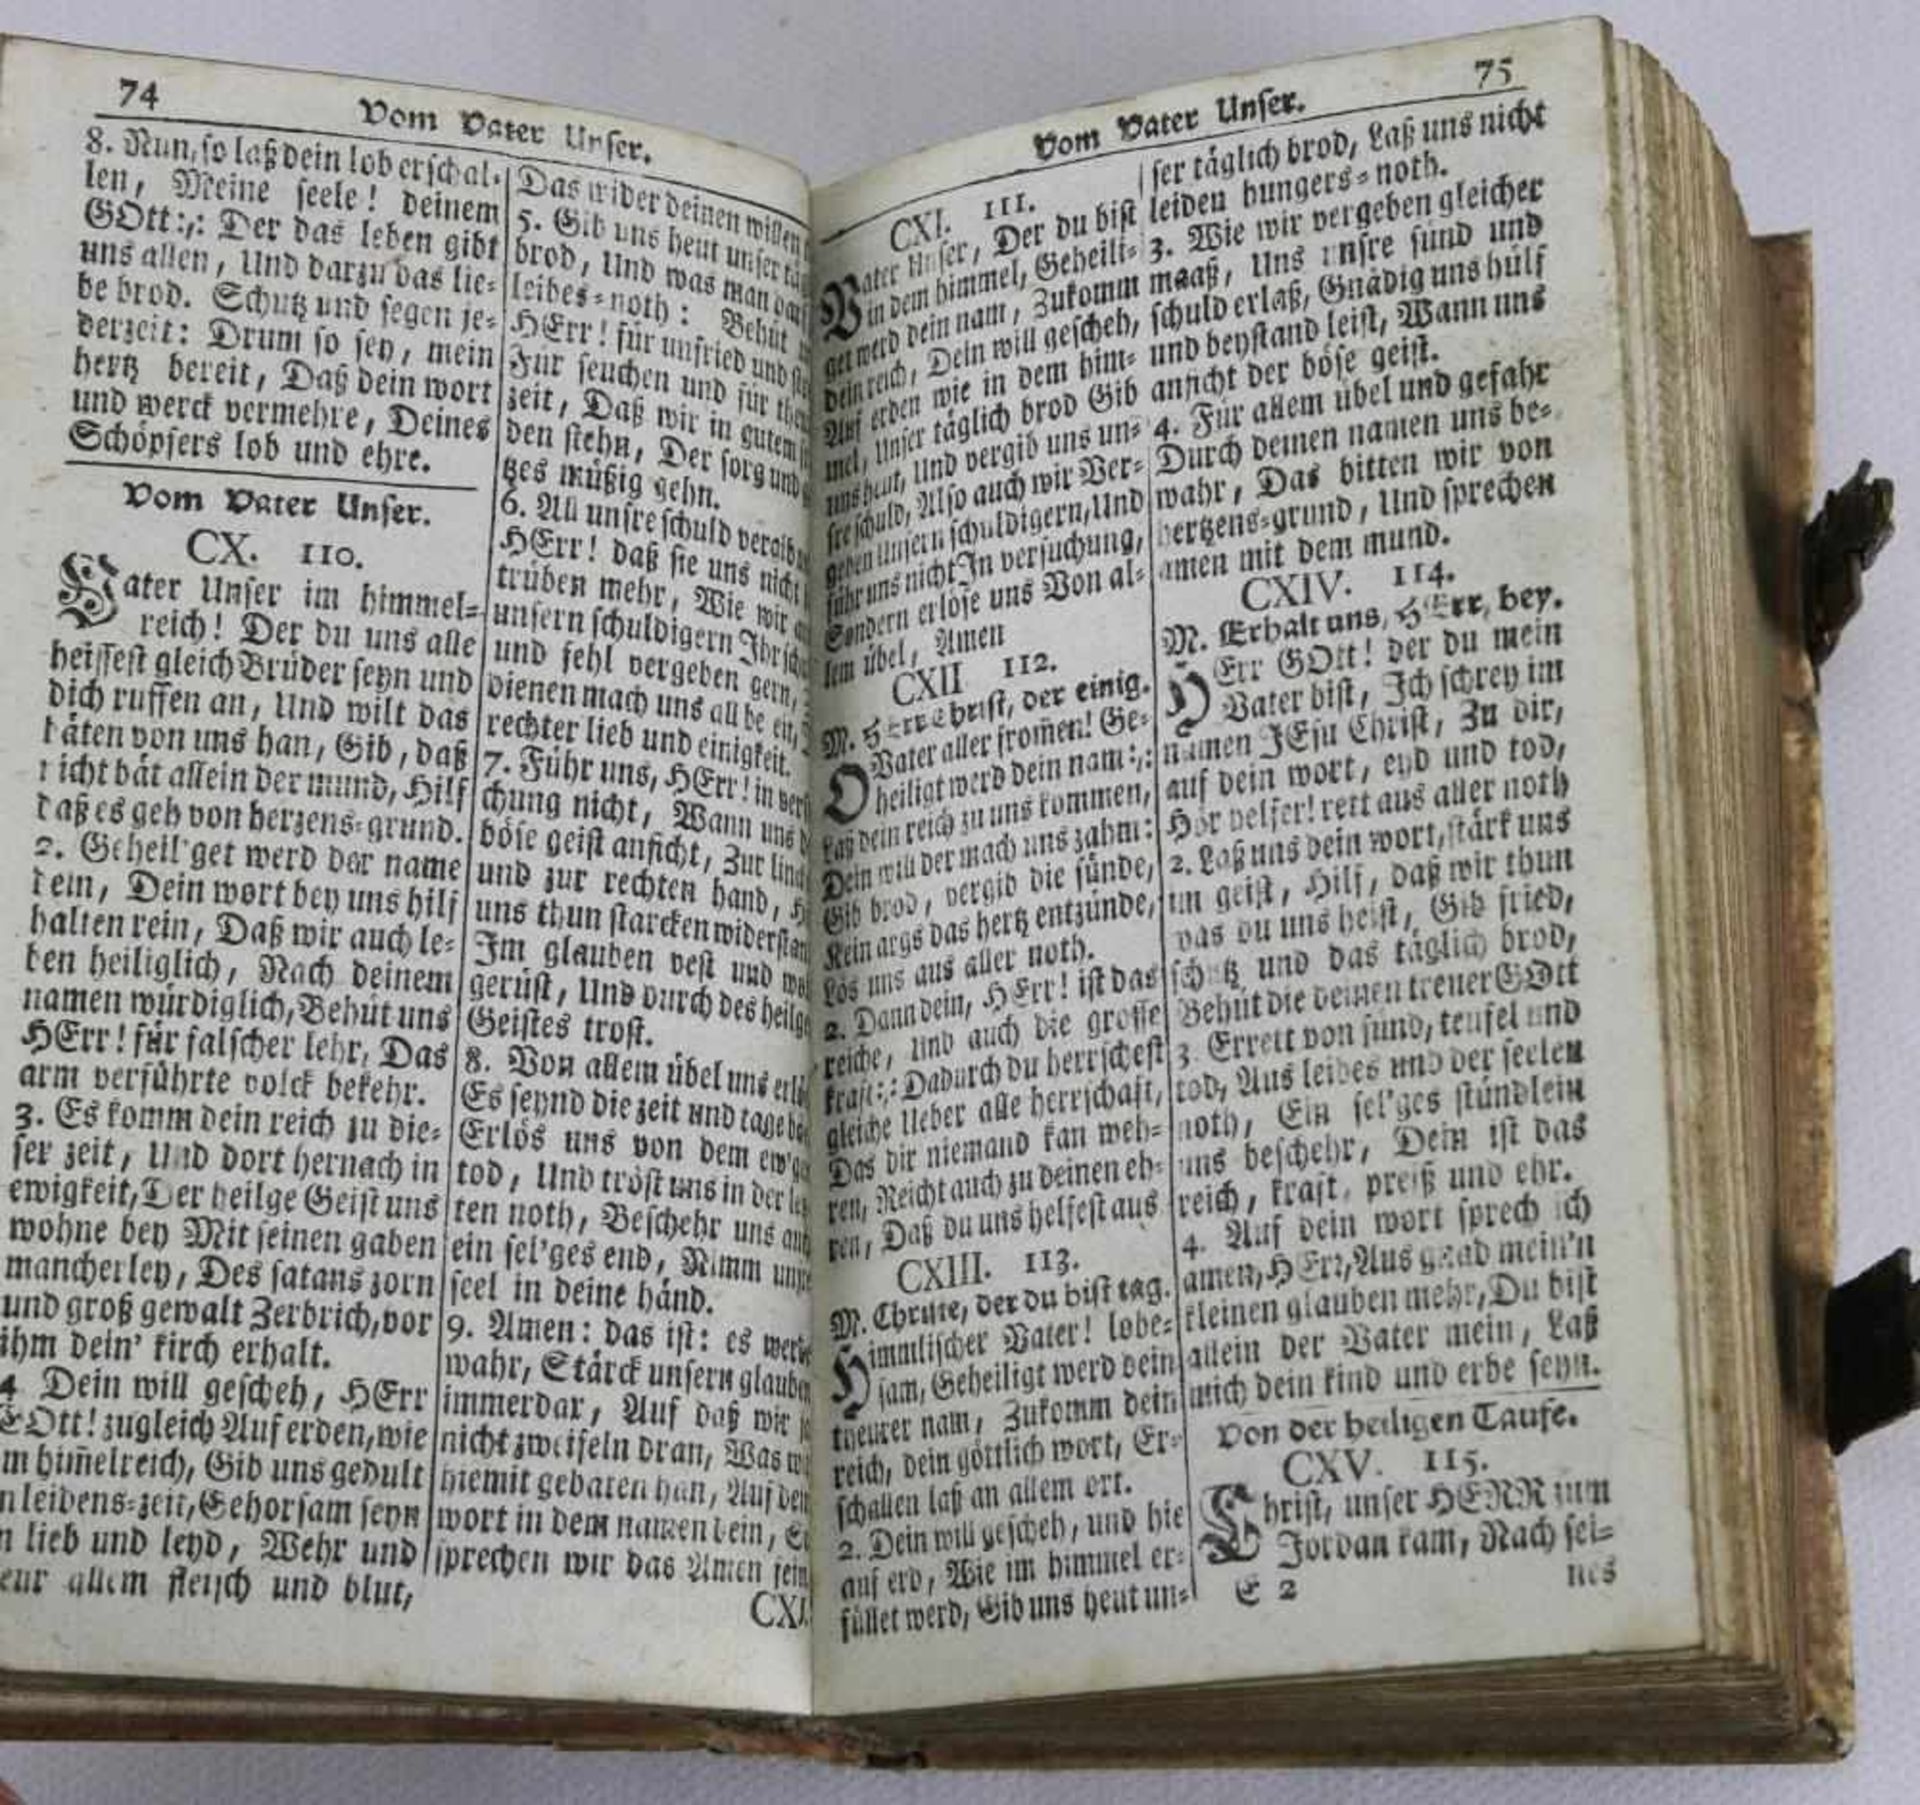 74
Vom Vater Unser.
8. Nun, so laß dein lob erschal-
len, Meine seele! deinem
GOtt:,: Der das leben gibt
uns allen, Und darzu das lie-
be brod. Schutz und segen je-
derzeit: Drum so sey, mein
hertz bereit, Daß dein wort
und werck vermehre, Deines
Schöpfers lob und ehre.
Vom Vater Unser.
CX. 110.
Vater Unser im himmel-
reich! Der du uns alle
heissest gleich Brüder seyn und
dich ruffen an, Und wilt das
bäten von uns han, Gib, daß
nicht bät allein der mund, Hilf
daß es geh von herzens-grund.
2. Geheil'get werd der name
dein, Dein wort bey uns hilf
halten rein, Daß wir auch le-
ben heiliglich, Nach deinem
namen würdiglich, Behüt uns
HErr! für falscher lehr, Das
arm verführte volck bekehr.
3. Es komm dein reich zu die-
ser zeit, Und dort hernach in
ewigkeit, Der heilge Geist uns
wohne bey Mit seinen gaben
mancherley, Des satans zorn
und groß gewalt Zerbrich, vor
ihm dein' kirch erhalt.
4 Dein will gescheh, HErr
GOtt! zugleich Auf erden, wie
m him̃elreich, Gib uns gedult
n leidens-zeit, Gehorsam seyn
n lieb und leyd, Wehr und
eur allem fleisch und blut,
Das wider deinen willen
5. Gib uns heut unser
brod, Und was man
leibes-noth: Behüt
HErr! für unfried und
Für seuchen und für
zeit, Daß wir in gutem
den stehn, Der sorg und
tzes müßig gehn.
6. All unsre schuld vergib
HErr! daß sie uns nicht
trüben mehr, Wie wir
unsern schuldigern Ihr
und fehl vergeben gern,
dienen mach uns all be en,
rechter lieb und einigkeit.
7. Führ uns, HErr! in
chung nicht, Wann uns
böse geist anficht, Zur
und zur rechten hand,
uns thun starcken
Im glauben vest und
gerüst, Und durch des heilge
Geistes trost.
8. Von allem übel uns
Es seynd die zeit und tage
Erlös uns von dem
tod, Und tröst uns in der
ten noth, Beschehr uns
ein sel'ges end, Nimm
seel in deine händ.
9. Amen: das ist: es
wahr, Stärck unsern glauben
immerdar, Auf daß wir
nicht zweifeln dran, Was
hiemit gebäten han, Auf
wort in dem namen dein,
sprechen wir das Amen
CXI.
75
Vom Vater Unser.
CXI. 111.
Vater Unser, Der du bist
in dem himmel, Geheili-
get werd dein nam, Zukomm
dein reich, Dein will gescheh,
Auf erden wie in dem him-
mel, Unser täglich brod Gib
uns heut, Und vergib uns un-
sre schuld, Also auch wir Ver-
geben unsern schuldigern, Und
führ uns nicht In versuchung,
Sondern erlöse uns Von al-
lem übel, Amen
CXII 112.
M. HErr Christ, der einig.
O Vater aller from̃en! Ge-
heiligt werd dein nam:,:
Laß dein reich zu uns kommen,
Dein will der mach uns zahm:
Gib brod, vergib die sünde,
Kein args das hertz entzünde,
Lös uns aus aller noth.
2. Dann dein, HErr! ist das
reiche, Und auch die grosse
kraft:,: Dadurch du herrschest
gleiche Ueber alle herrschaft,
Das dir niemand kan weh-
ren, Reicht auch zu deinen eh-
ren, Daß du uns helfest aus
CXIII. 113.
M. Christe, der du bist tag.
Himmlischer Vater! lobe-
sam, Geheiligt werd dein
theurer nam, Zukomm dein
reich, dein göttlich wort, Er-
schallen laß an allem ort.
2. Dein will gescheh, und hie
auf erd, Wie im himmel er-
füllet werd, Gib uns heut un-
ser täglich brod, Laß uns nicht
leiden hungers-noth.
3. Wie wir vergeben gleicher
maaß, Uns unsre sünd und
schuld erlaß, Gnädig uns hülf
und beystand leist, Wann uns
anficht der böse geist.
4. Für allem übel und gefahr
Durch deinen namen uns be-
wahr, Das bitten wir von
hertzens-grund, Und sprechen
amen mit dem mund.
CXIV. 114.
M. Erhalt uns, HErr, bey.
HErr GOtt! der du mein
Vater bist, Ich schrey im
namen JEsu Christ, Zu dir,
auf dein wort, eyd und tod,
Hör helfer! rett aus aller noth
2. Laß uns dein wort, stärk uns
im geist, Hilf, daß wir thun
was du uns heist, Gib fried,
schutz und das täglich brod,
Behüt die deinen treuer GOtt
3. Errett von sünd, teufel und
tod, Aus leibes und der seelen
noth, Ein sel'ges stündlein
uns beschehr, Dein ist das
reich, kraft, preiß und ehr.
4. Auf dein wort sprech ich
amen, HErr, Aus gnad mein'n
kleinen glauben mehr, Du bist
allein der Vater mein, Laß
mich dein kind und erbe seyn.
Von der heiligen Taufe.
CXV. 115.
Christ, unser HERR zum
Jordan kam, Nach sei-
E 2
nes